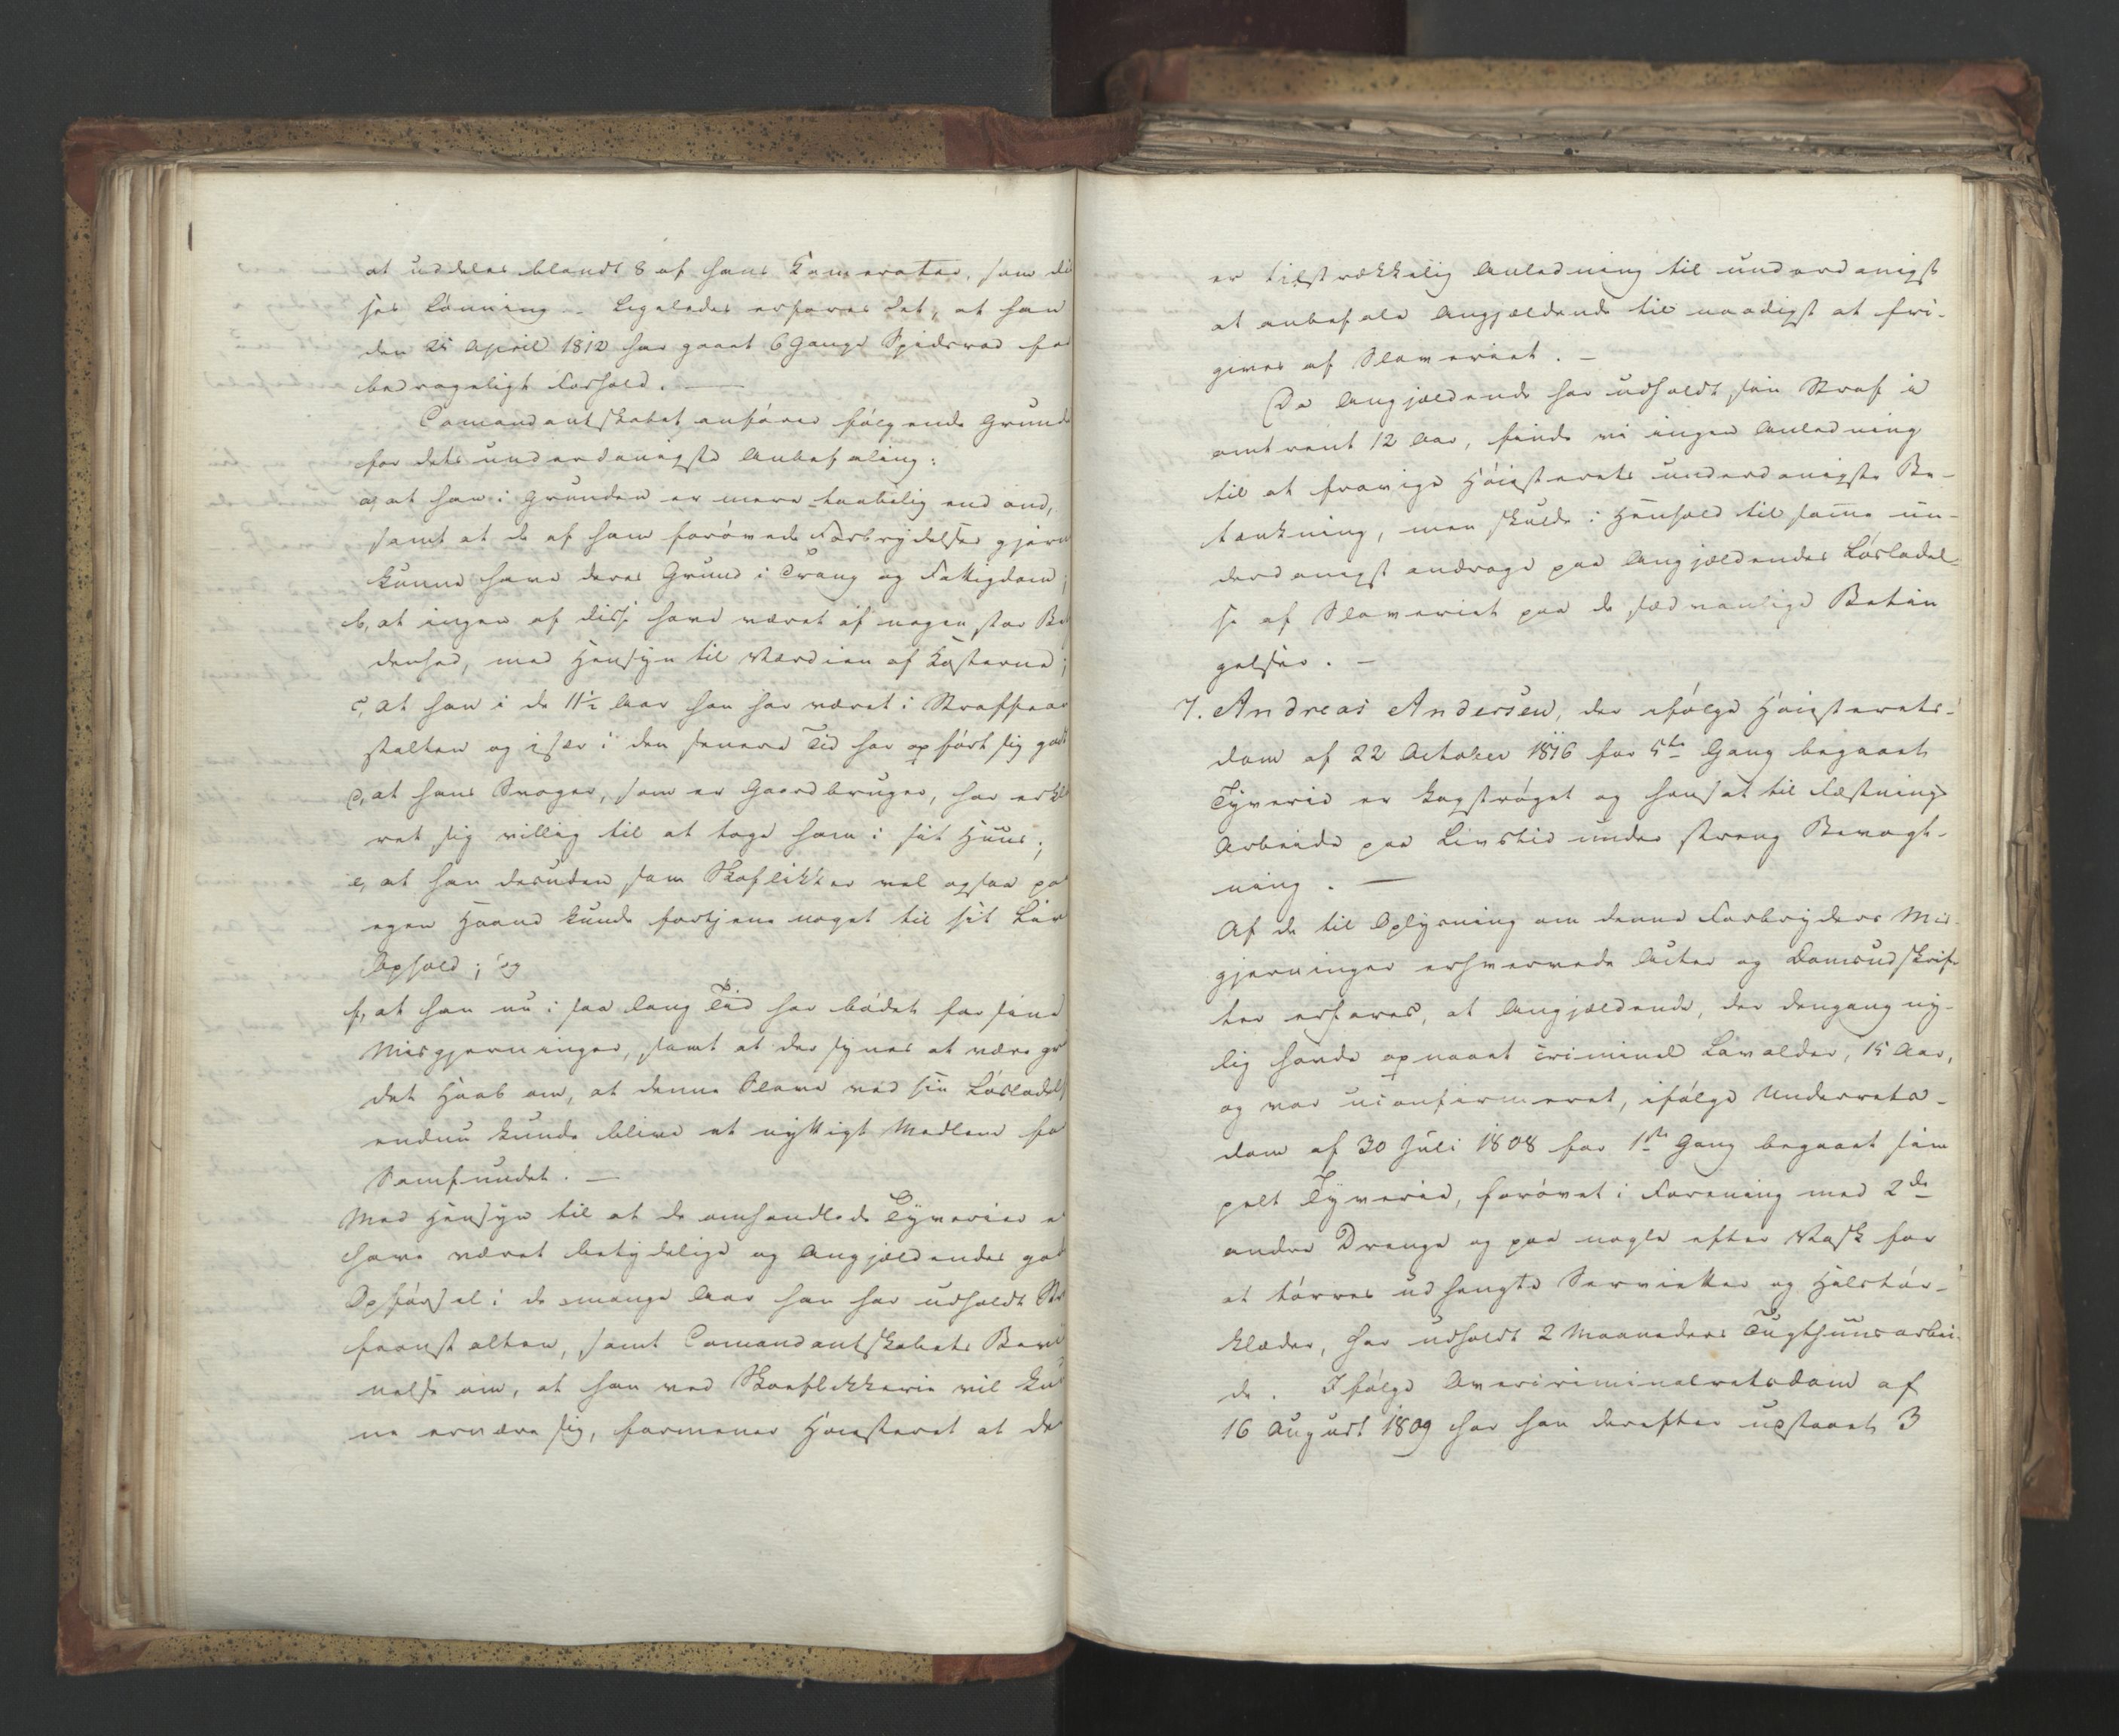 at uddeles blandt 8 af hans Kamerater, som di
ses Lønning. Ligeledes erfares det, at han
den 25 April 1812 har gaaet 6 Gange Spidsrod for
bedrageligt Forhold. —
Comandantskabet anfører følgende Grunde
for dets underdanigste Anbefaling:
a, at han i Grunden er mere taabelig end ond,
samt at de af ham forøvede Forbrydelser gjerne
kunne have deres Grund i Trang og Fattigdom;
b, at ingen af disse have været af nogen stor Be
denhed, med Hensyn til Værdien af Kosterne;
c, at han i de 11½ Aar han har været i Straffean
stalten og især i den senere Tid har opført sig godt
d, at hans Svoger, som er Gaardbruger, har erklæ
ret sig villig til at tage ham i sit Huus;
e, at han desuden som Skoflikker vel ogsaa paa
egen Haand kunde fortjene noget til sit Livs
Ophold; og
f, at han nu i saa lang Tid har bødet for sine
Misgjerninger, samt at der synes at være grun
det Haab om, at denne Slave ved sin Løsladelse
endnu kunde blive et nyttigt Medlem for
Samfundet. —
Med Hensyn til at de omhandlede Tyverier ei
have været betydelige og Angjældendes gode
Opførsel i de mange Aar han har udholdt Stra
feanstalten, samt Comandantskabets Bevid
nelse om, at han ved Skoeflikkerie vil kun
ne ernære sig, formener Høiesteret at der
er tilstrækkelig Anledning til underdanigst
at anbefale Angjældende til naadigst at fri-
gives af Slaveriet. —
Da Angjældende har udholdt sin Straf i
omtrent 12 Aar, finde vi ingen Anledning
til at fravige Høiesterets underdanigste Be-
tænkning, men skulde i Henhold til samme un-
derdanigst andrage paa Angjældendes Løsladel-
se af Slaveriet paa de sædvanlige Betin
gelser. —
7. Andreas Andersen, der ifølge Høiesterets-
dom af 22 October 1816 for 5te Gang begaaet
Tyverie er kagstrøget og hensat til Fæstnings
Arbeide paa Livstid under streng Bevogt-
ning. —
Af de til Oplysning om denne Forbryders Mis-
gjerninger erhvervede Acter og Domsudskrif-
ter erfares, at Angjældende, der dengang ny-
lig havde opnaaet criminel Lavalder, 15 Aar,
og var uconfirmeret, ifølge Underrets-
dom af 30 Juli 1808 for 1ste Gang begaaet sim
pelt Tyverie, forøvet i Forening med 2de
andre Drenge og paa nogle efter Vask for
at tørres udhængte Servietter og Halstør-
klæder, har udholdt 2 Maaneders Tugthuusarbei-
de. Ifølge Overcriminalretsdom af
16 August 1809 har han derefter udstaaet 3